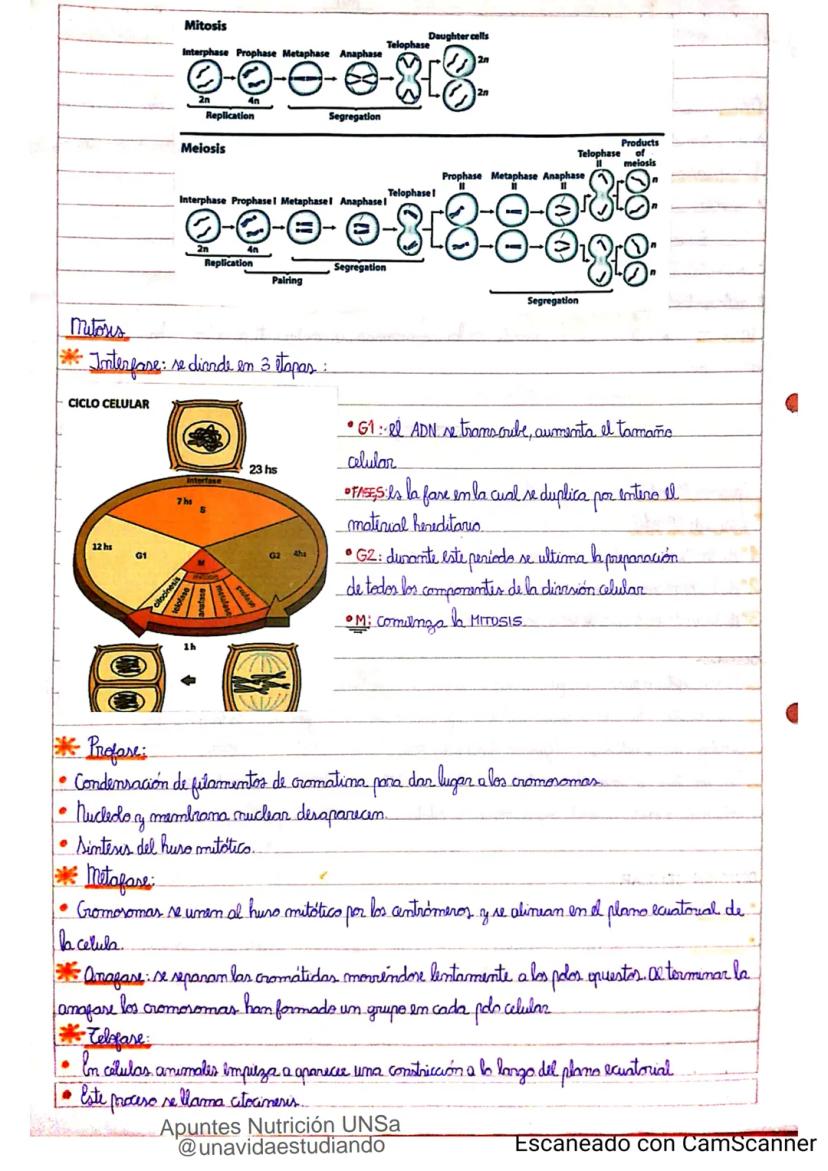 Mitosis
Daughter cells
Interphase Prophase Metaphase Anaphase Telophase
2n
2n
2n 4n
Replication Segregation
Meiosis
Products of meiosis
Telophase II
Prophase II Metaphase II Anaphase II
Interphase Prophase I Metaphase I Anaphase I Telophase I
n
n
n
n
2n 4n
Replication Segregation
Pairing
Segregation
Mitosis
Interfase: se divide en 3 etapas:
CICLO CELULAR
23 hs
Interfase
7 hs
S
12 hs G1 G2 4hs
M
mitosis
citocinesis telofase anafase metafase profase
1h
• G1: el ADN se transcribe, aumenta el tamaño
celular
• FASE S: es la fase en la cual se duplica por entero el
material hereditario
• G2: durante este periodo se ultima la preparación
de todos los componentes de la división celular
• M: comienza la MITOSIS
Profase:
• Condensación de filamentos de cromatina para dar lugar a los cromosomas.
• Nucleolo y membrana nuclear desaparecen.
• Síntesis del huso mitótico.
Metafase:
• Cromosomas se unen al huso mitótico por los centrómeros y se alinean en el plano ecuatorial de
la celula.
Anafase: se separan las cromátidas moviéndose lentamente a los polos opuestos. Al terminar la
anafase los cromosomas han formado un grupo en cada polo celular
Telofase:
• En células animales empieza a aparecer una constricción a lo largo del plano ecuatorial
• Este proceso se llama citocinesis.
Apuntes Nutrición UNSa
@unavidaestudiando
Escaneado con CamScanner